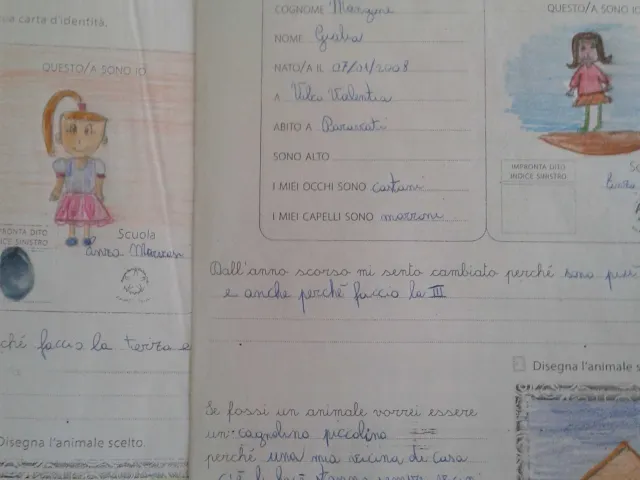 tua carta d'identità.
QUESTO/A SONO IO
IMPRONTA DITO
INDICE SINISTRO
Scuola
ché faccio la terza e
Disegna l'animale scelto.
COGNOME
NOME Giulia
NATO/A IL 07/01/2008
A Vibo Valentia
ABITO A Paravati
SONO ALTO
I MIEI OCCHI SONO castani
I MIEI CAPELLI SONO marroni
QUESTO/A SONO IO
IMPRONTA DITO
INDICE SINISTRO
Dall'anno scorso mi sento cambiato perché sono più
e anche perché faccio la III
Disegna l'animale s
Se fossi un animale vorrei essere
un cagnolino piccolino
perché una mia vicina di casa